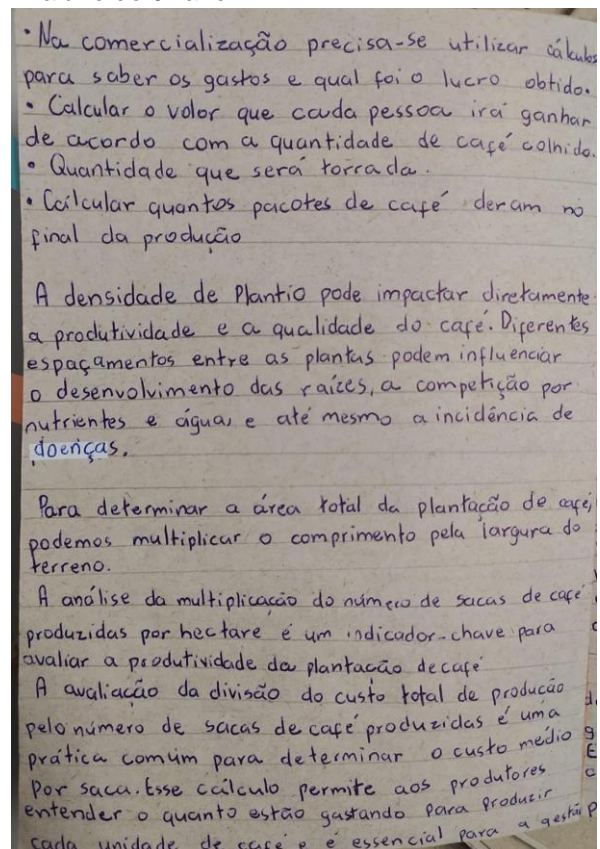 • Na comercialização precisa-se utilizar cálculos
para saber os gastos e qual foi o lucro obtido.
• Calcular o valor que cada pessoa irá ganhar
de acordo com a quantidade de café colhido.
• Quantidade que será torrada.
• Calcular quantos pacotes de café deram no
final da produção
A densidade de Plantio pode impactar diretamente
a produtividade e a qualidade do café. Diferentes
espaçamentos entre as plantas podem influenciar
o desenvolvimento das raízes, a competição por
nutrientes e água, e até mesmo a incidência de
doenças.
Para determinar a área total da plantação de café,
podemos multiplicar o comprimento pela largura do
terreno.
A análise da multiplicação do número de sacas de café
produzidas por hectare é um indicador-chave para
avaliar a produtividade da plantação de café
A avaliação da divisão do custo total de produção
pelo número de sacas de café produzidas é uma
prática comum para determinar o custo médio
Por saca. Esse cálculo permite aos produtores
entender o quanto estão gastando Para Produzir
cada unidade de café e é essencial para a